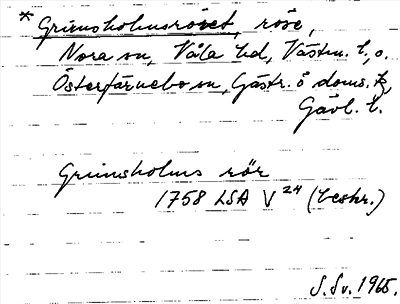 * Grimsholmsröset, röse,
Nora sn, Våla hd, Västm. l., o.
Österfärnebo sn, Gästr. ö doms.,
Gävl. l.
Grimsholms rör
1758 LSA V 24 (beskr.)
S. Sv. 1965.